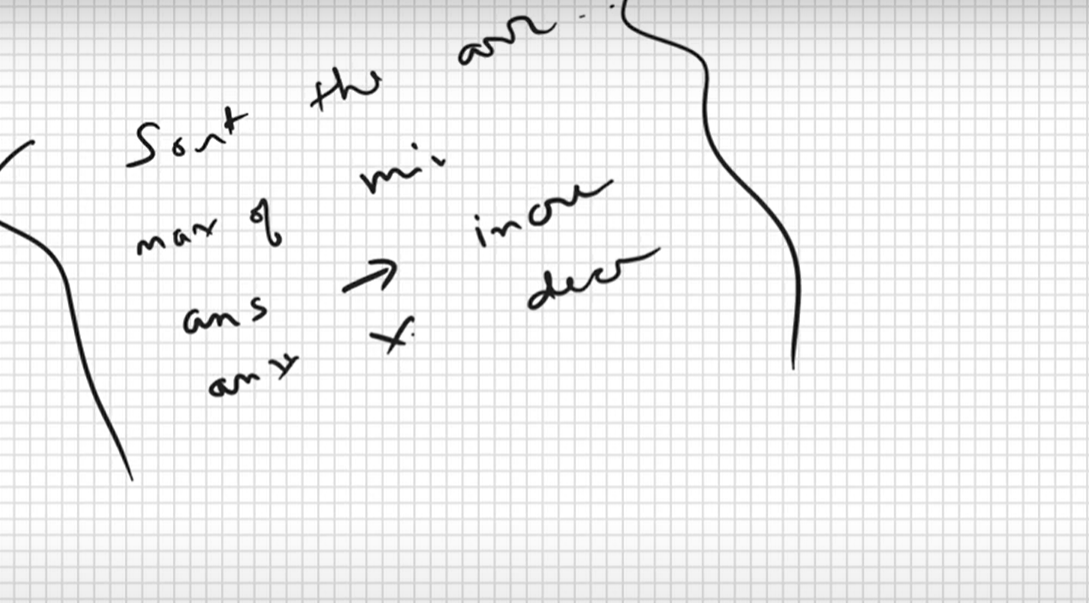 Sort the arr...
max of min
ans → incr
ans x decr